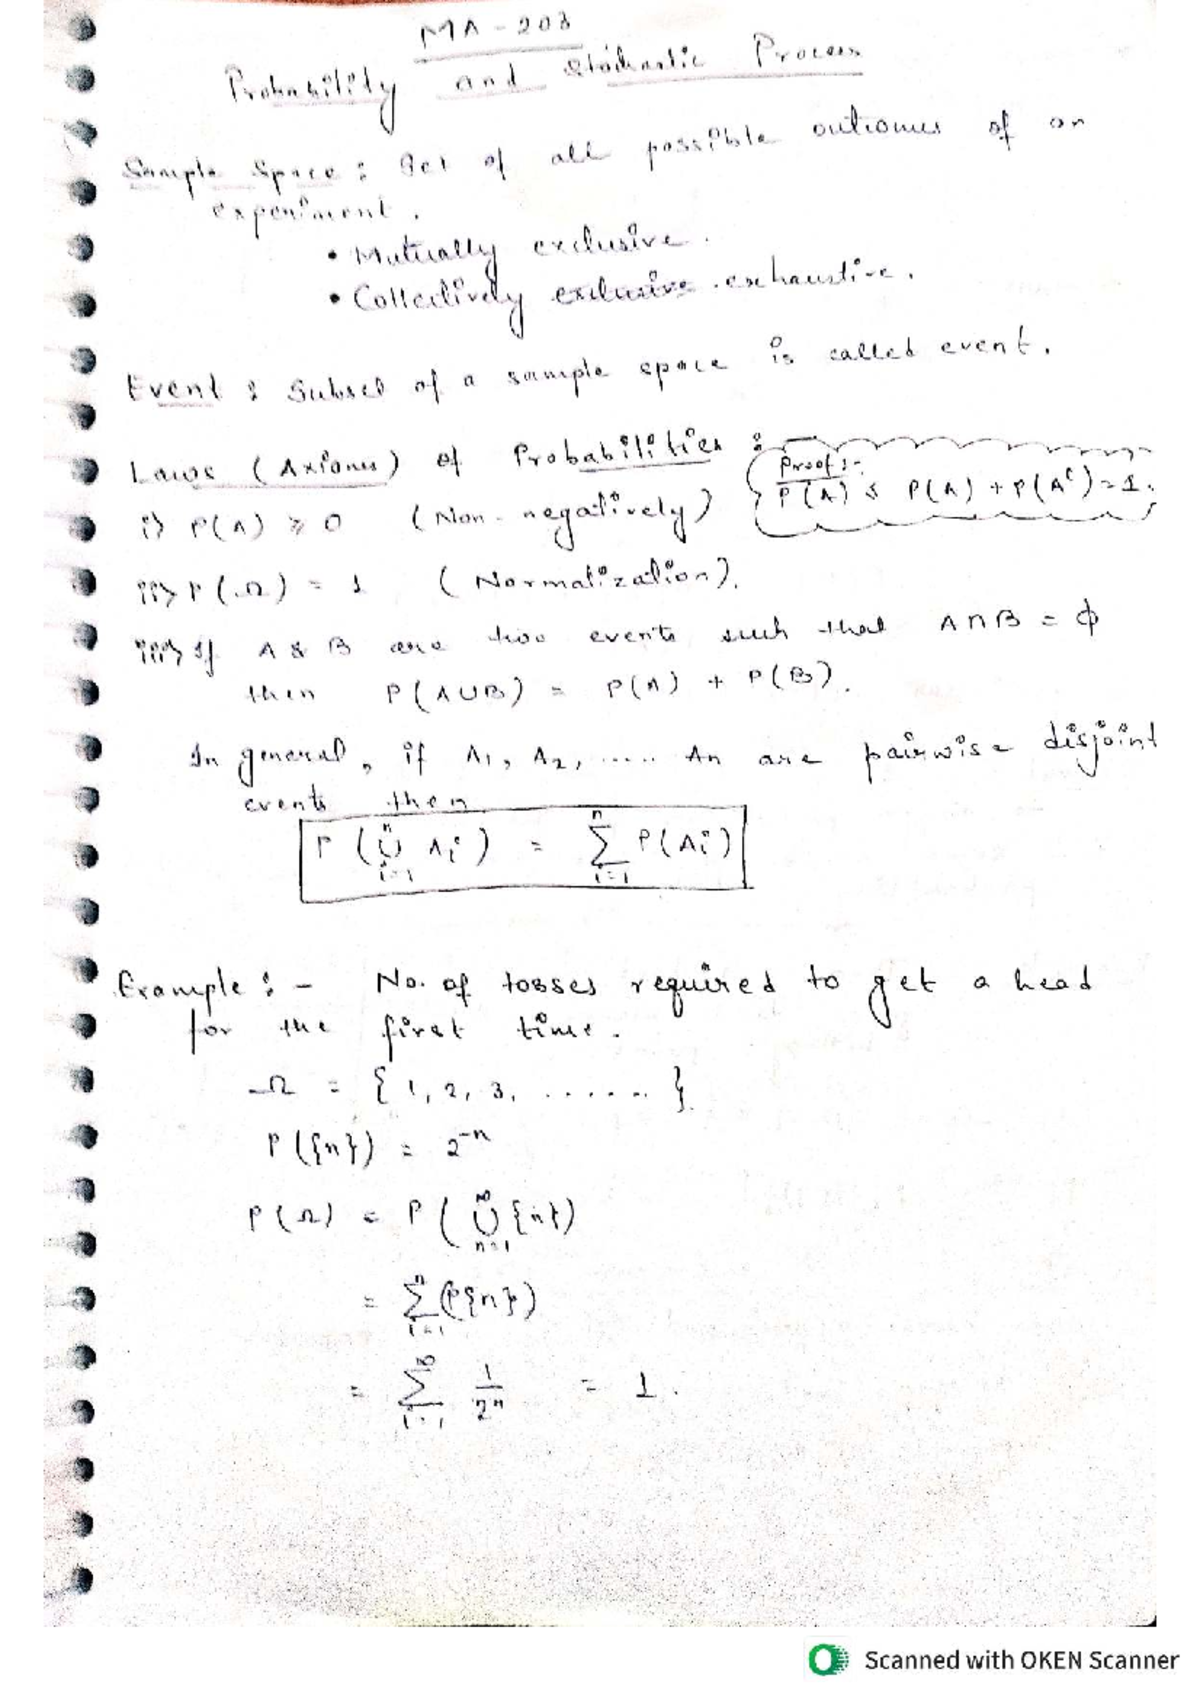 MA-203
Probability and Stochastic Process
Sample Space : Set of all possible outcomes of an
experiment.
• Mutually exclusive.
• Collectively exclusive exhaustive.
Event : Subset of a sample space is called event.
Laws (Axioms) of Probabilities :
Proof :-
P(A) ≤ P(A) + P(Aᶜ) = 1.
i> P(A) ≥ 0 (Non-negatively)
ii> P(Ω) = 1 (Normalization).
iii> If A & B are two events such that A∩B = ϕ
then P(A∪B) = P(A) + P(B).
In general, if A₁, A₂, ..... An are pairwise disjoint
events then
P (⋃_{i=1}^{n} Ai) = ∑_{i=1}^{n} P(Ai)
Example :- No. of tosses required to get a head
for the first time.
Ω = { 1, 2, 3, ...... }
P({n}) = 2⁻ⁿ
P(Ω) = P ( ⋃_{n=1}^{∞} {n})
= ∑_{i=1}^{n} (P{n})
= ∑_{i=1}^{∞} 1/2ⁿ = 1.
Scanned with OKEN Scanner